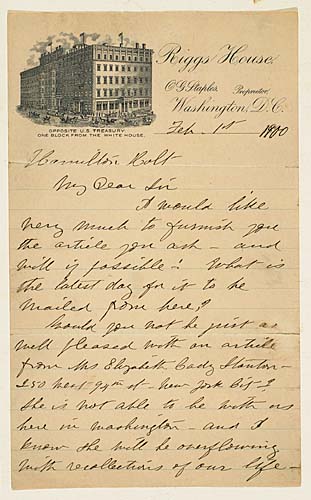 Riggs House,
O. G. Staples, Proprietor,
Washington, D.C.
OPPOSITE U.S. TREASURY.
ONE BLOCK FROM THE WHITE HOUSE.
Feb. 1st 1900
Hamilton Holt
My Dear Sir
I would like
very much to furnish you
the article you ask - and
will if possible! What is
the latest day for it to be
mailed from here?
Would you not be just as
well pleased with an article
from Mrs Elizabeth Cady Stanton -
250 West 94th st - New York City?
She is not able to be with us
here in Washington - and I
know she will be overflowing
with recollections of our life -